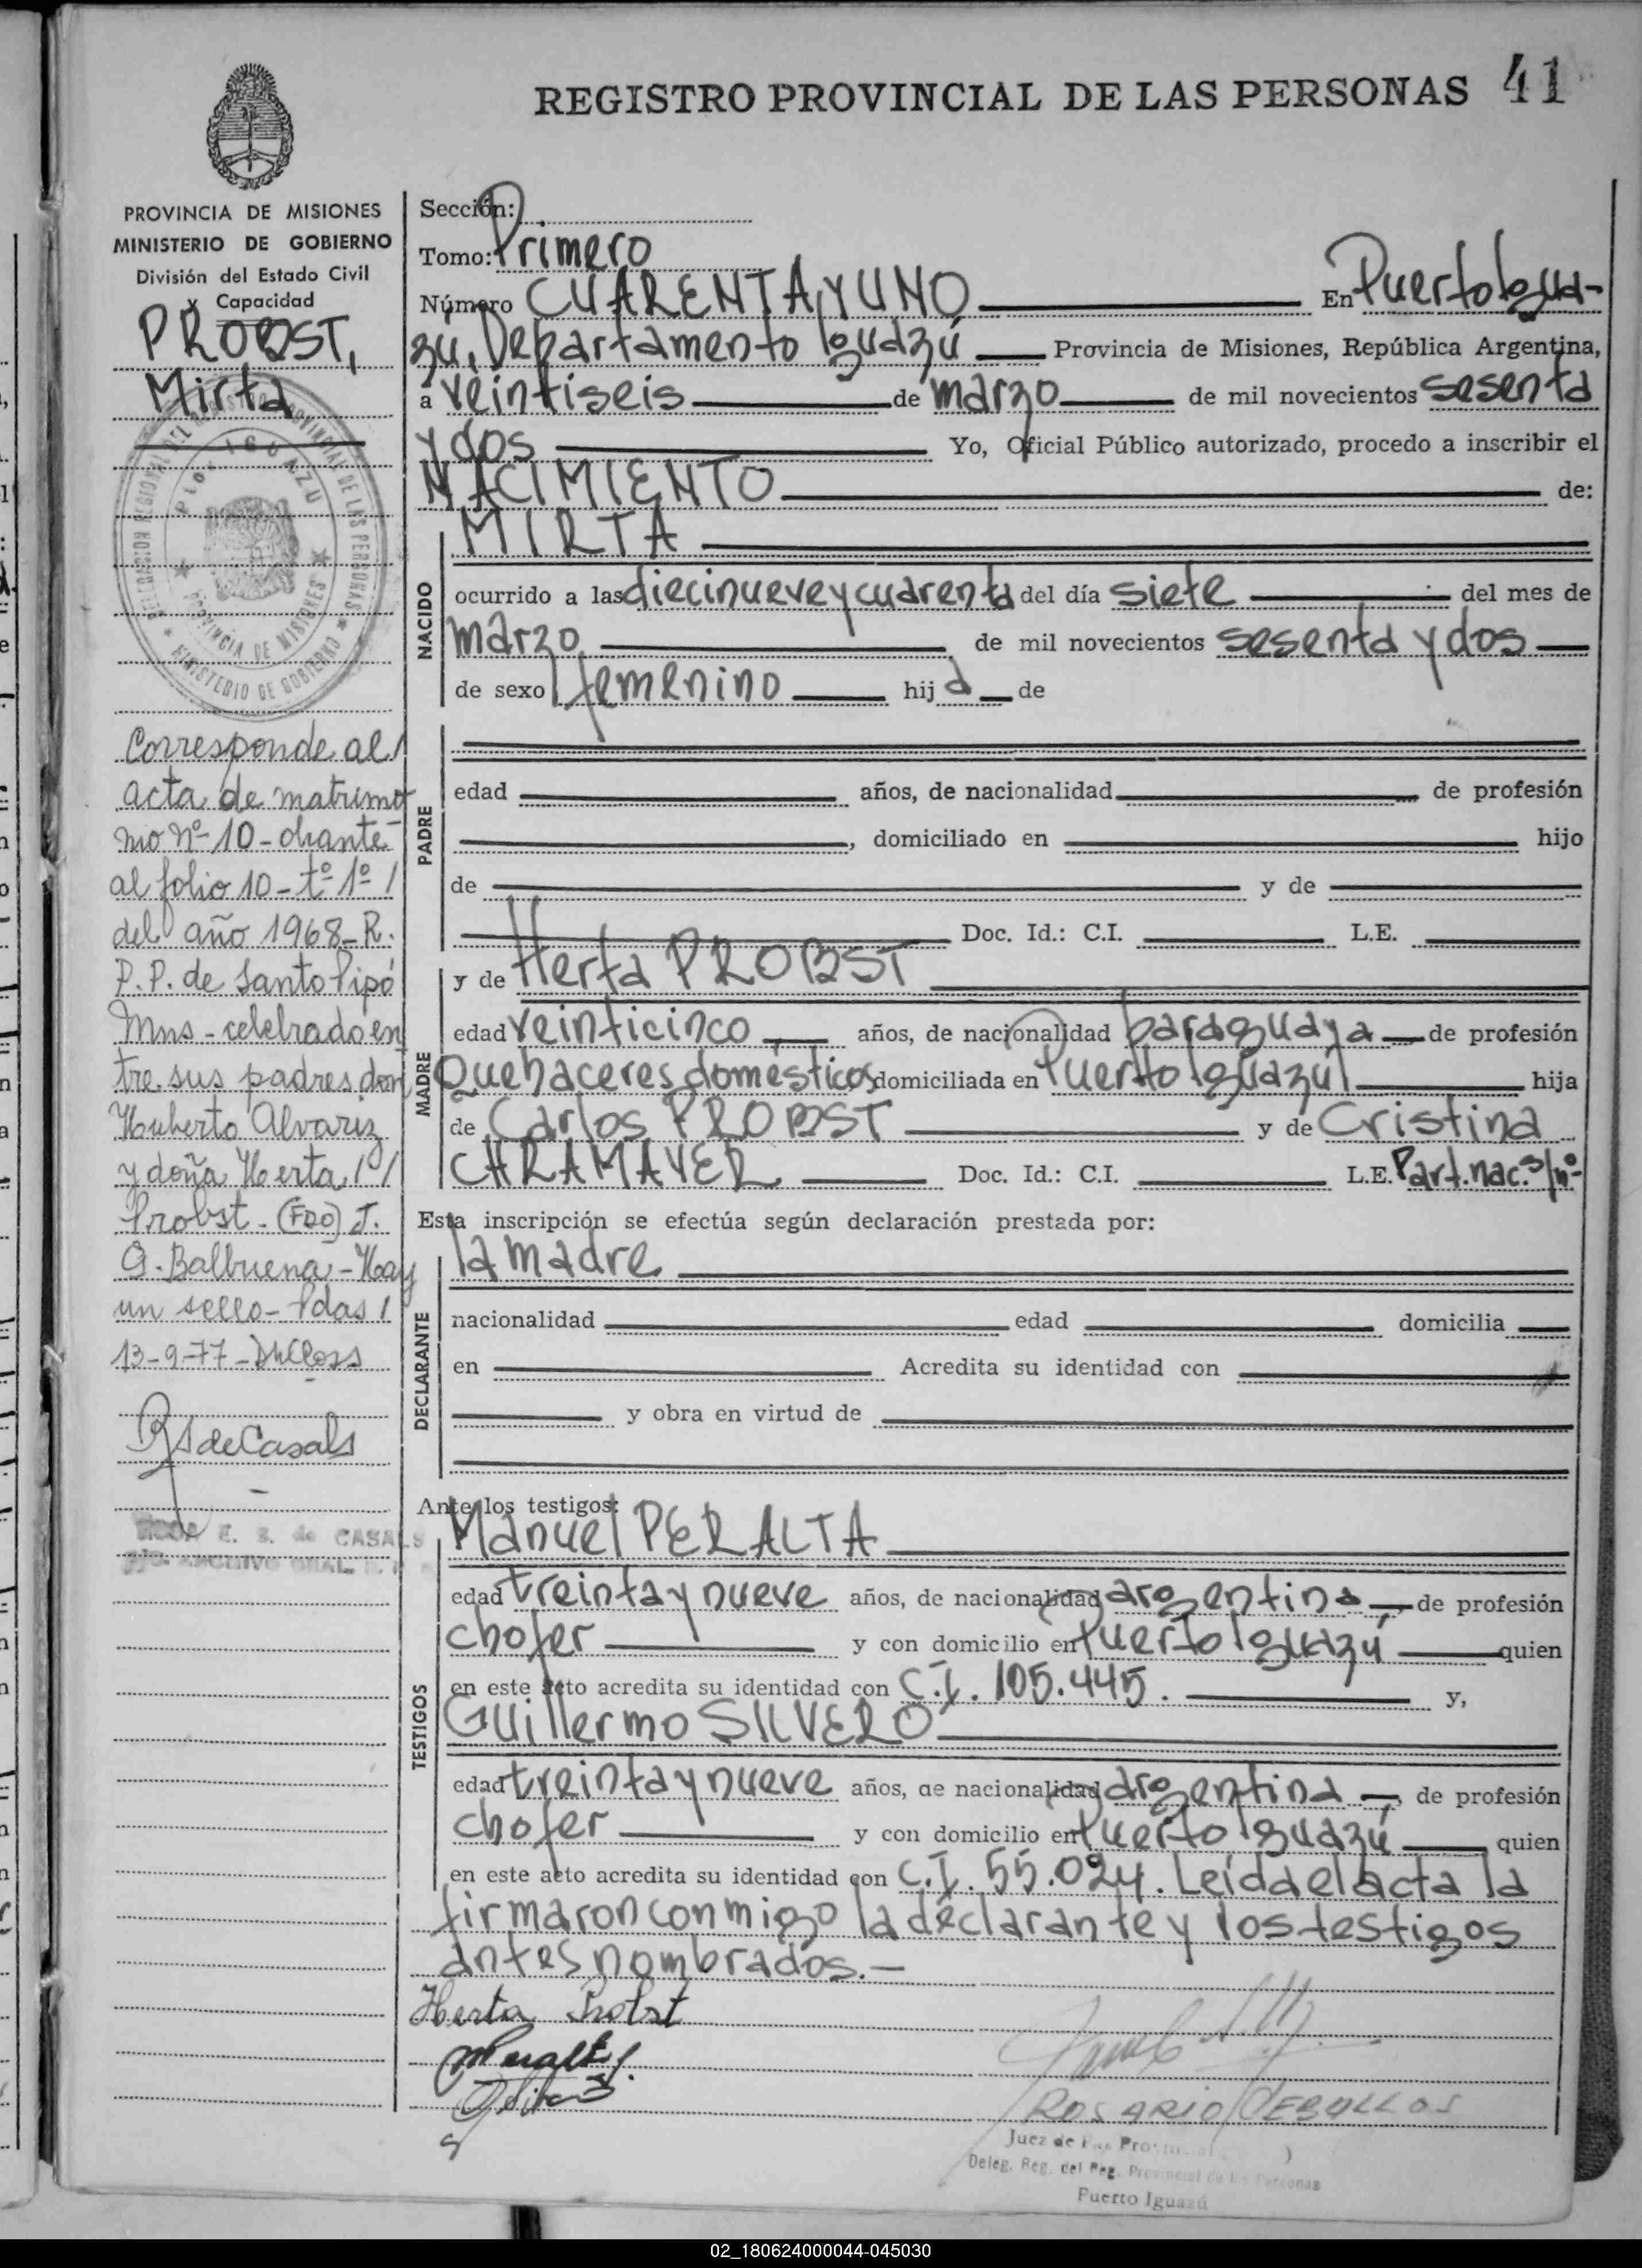 REGISTRO PROVINCIAL DE LAS PERSONAS 41
PROVINCIA DE MISIONES
MINISTERIO DE GOBIERNO
División del Estado Civil
y Capacidad
PROBST,
Mirta
DELEGACION REGIONAL DEL REGISTRO PROVINCIAL DE LAS PERSONAS
Pto. IGUAZU
PROVINCIA DE MISIONES
MINISTERIO DE GOBIERNO
Corresponde al/
acta de matrimo
nio Nº 10 - obrante
al folio 10 - tº 1º /
del año 1968 - R.
P.P. de Santo Pipó
Mns - celebrado en
tre sus padres don
Huberto Alvariz
y doña Herta //
Probst - (FDO) J.
G. Balbuena - Hay
un sello - Pdas /
13-9-77 -
de Casals
E. S. de CASALS
ARCHIVO GRAL.
Sección:
Tomo: Primero
Número CUARENTA Y UNO En Puerto Igua-
zú, Departamento Iguazú Provincia de Misiones, República Argentina,
a veintiseis de marzo de mil novecientos sesenta
y dos Yo, Oficial Público autorizado, procedo a inscribir el
NACIMIENTO de:
NACIDO
MIRTA
ocurrido a las diecinueve y cuarenta del día siete del mes de
marzo de mil novecientos sesenta y dos
de sexo femenino hija de
PADRE
edad años, de nacionalidad de profesión
, domiciliado en hijo
de y de
Doc. Id.: C.I. L.E.
MADRE
y de Herta PROBST
edad veinticinco años, de nacionalidad paraguaya de profesión
Quehaceres domésticos domiciliada en Puerto Iguazú hija
de Carlos PROBST y de Cristina
CHRAMAYER Doc. Id.: C.I. L.E. Part. nac. s/nº
Esta inscripción se efectúa según declaración prestada por:
DECLARANTE
la madre
nacionalidad edad domicilia
en Acredita su identidad con
y obra en virtud de
Ante los testigos:
TESTIGOS
Manuel PERALTA
edad treinta y nueve años, de nacionalidad argentina de profesión
chofer y con domicilio en Puerto Iguazú quien
en este acto acredita su identidad con C.I. 105.445. y,
Guillermo SILVERO
edad treinta y nueve años, de nacionalidad argentina, de profesión
chofer y con domicilio en Puerto Iguazú quien
en este acto acredita su identidad con C.I. 55.024. Leída el acta la
firmaron conmigo la declarante y los testigos
antes nombrados.-
Herta Probst
MPeralta
ROSARIO CEBALLOS
Juez de Paz Provincial
Deleg. Reg. del Reg. Provincial de las Personas
Puerto Iguazú
02_180624000044-045030